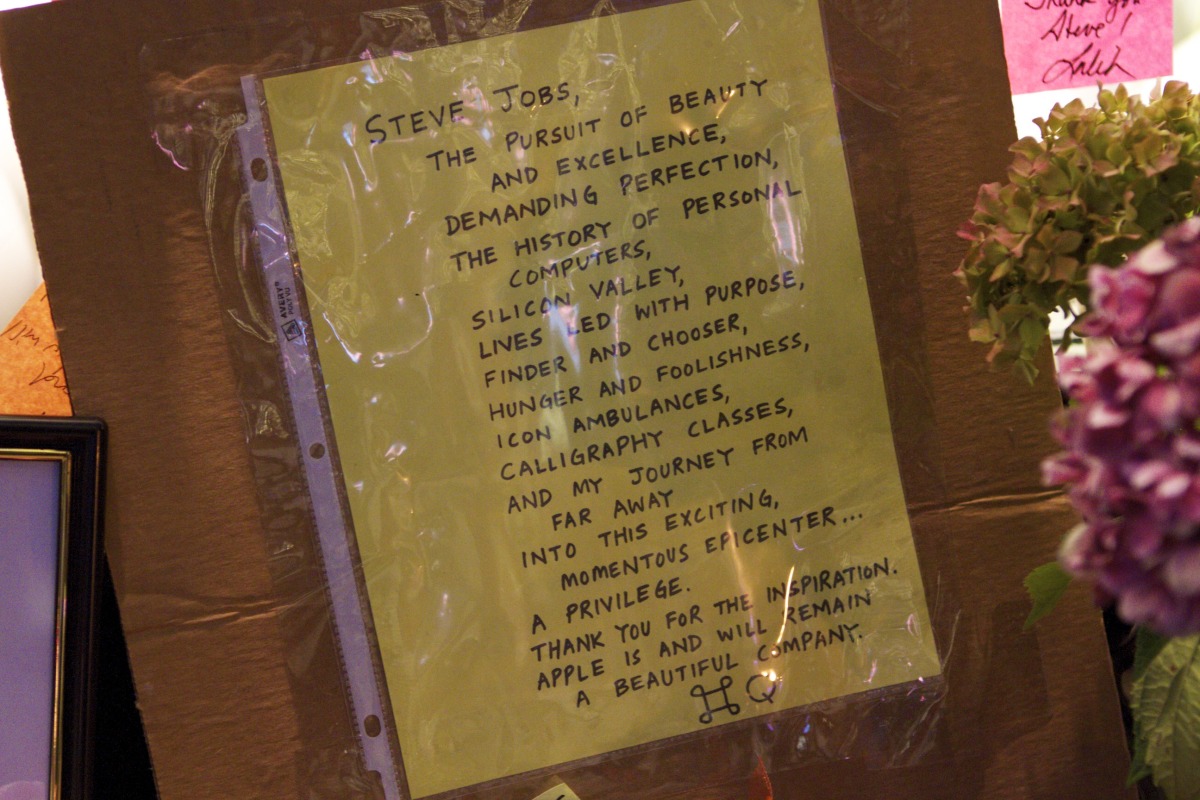 Thank you
Steve!
STEVE JOBS,
THE PURSUIT OF BEAUTY
AND EXCELLENCE,
DEMANDING PERFECTION,
THE HISTORY OF PERSONAL
COMPUTERS,
SILICON VALLEY,
LIVES LED WITH PURPOSE,
FINDER AND CHOOSER,
HUNGER AND FOOLISHNESS,
ICON AMBULANCES,
CALLIGRAPHY CLASSES,
AND MY JOURNEY FROM
FAR AWAY
INTO THIS EXCITING,
MOMENTOUS EPICENTER...
A PRIVILEGE.
THANK YOU FOR THE INSPIRATION.
APPLE IS AND WILL REMAIN
A BEAUTIFUL COMPANY.
⌘ Q
AVERY®